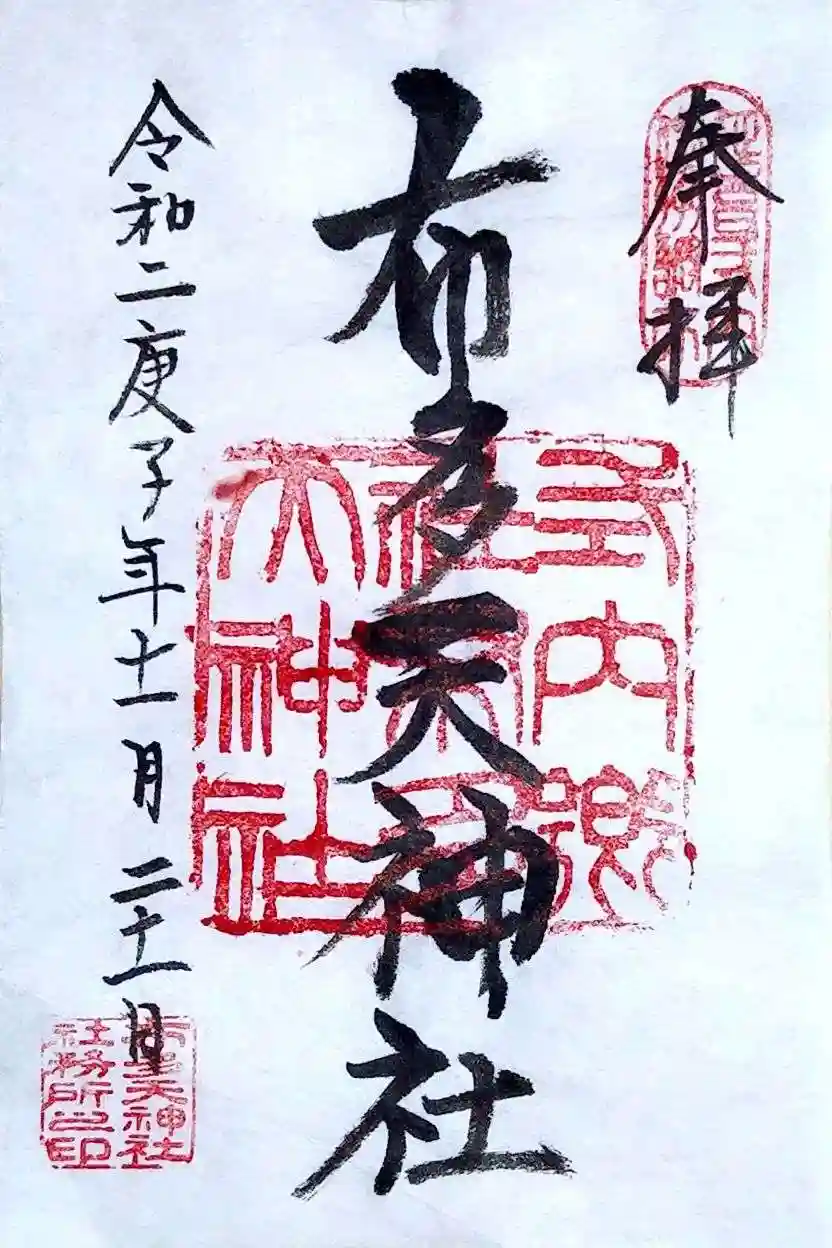 奉拝
布多天神社
令和二庚子年十一月二十一日
式内郷
天神社
布多天神社
社務所之印